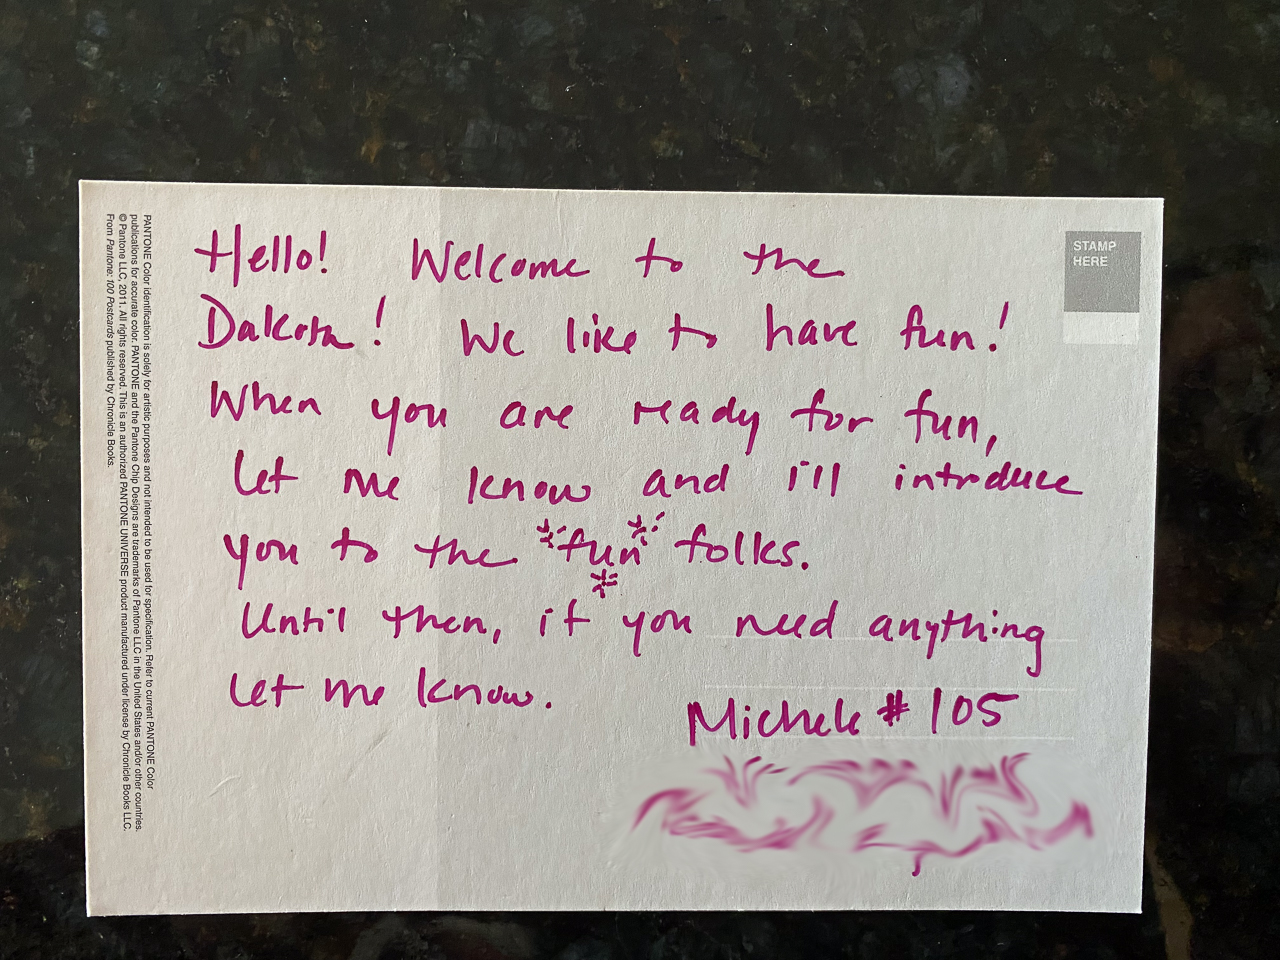 Hello! Welcome to the
Dakota! We like to have fun!
When you are ready for fun,
let me know and i'll introduce
you to the *fun* folks.
Until then, if you need anything
let me know.
Michele #105
STAMP
HERE
PANTONE Color identification is solely for artistic purposes and not intended to be used for specification. Refer to current PANTONE Color
publications for accurate color. PANTONE and the Pantone Chip Designs are trademarks of Pantone LLC in the United States and/or other countries.
© Pantone LLC, 2011. All rights reserved. This is an authorized PANTONE UNIVERSE product manufactured under license by Chronicle Books LLC.
From Pantone: 100 Postcards published by Chronicle Books.